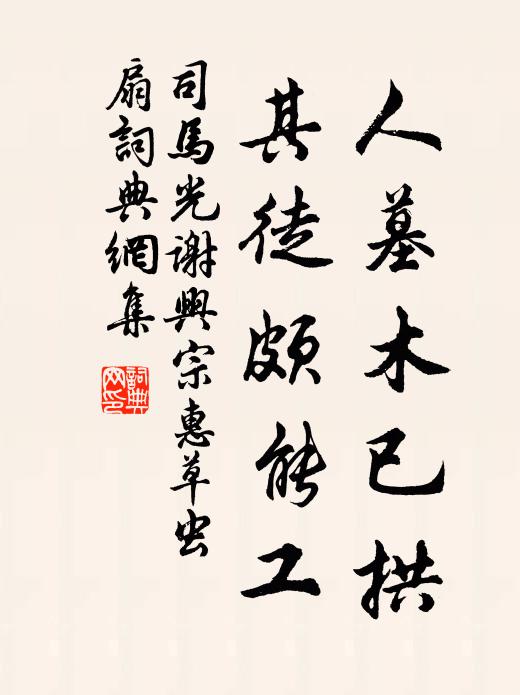 人墓木已拱
其徒頗能工
司馬光謝興宗惠草虫
扇詞典網集
詞典网印